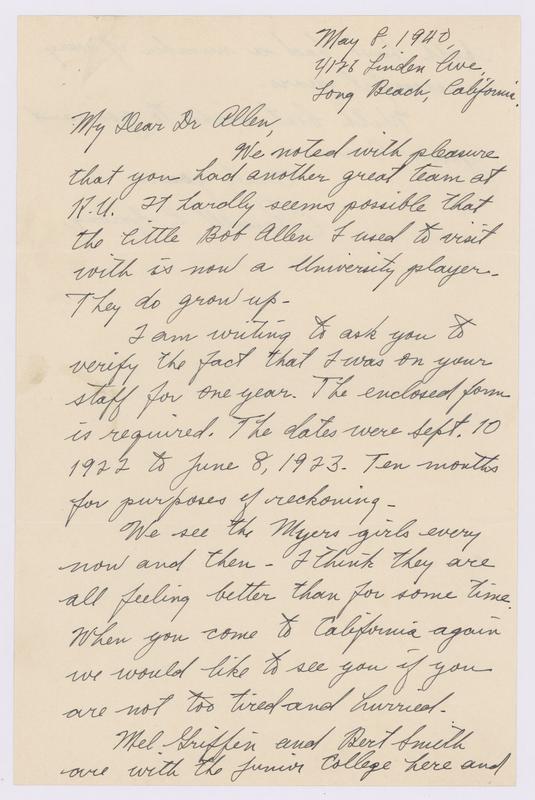 May 8, 1940,
Linden Ave,
Long Beach, California.
My Dear Dr Allen,
We noted with pleasure
that you had another great team at
K.U. It hardly seems possible that
the little Bob Allen I used to visit
with is now a University player-
They do grow up-
I am writing to ask you to
verify the fact that I was on your
staff for one year. The enclosed form
is required. The dates were Sept. 10
1922 to June 8, 1923. Ten months
for purposes of reckoning-
We see the Myers girls every
now and then - I think they are
all feeling better than for some time.
When you come to California again
we would like to see you if you
are not too tired and hurried.
Mel Griffin and Bert Smith
are with the Junior College here and